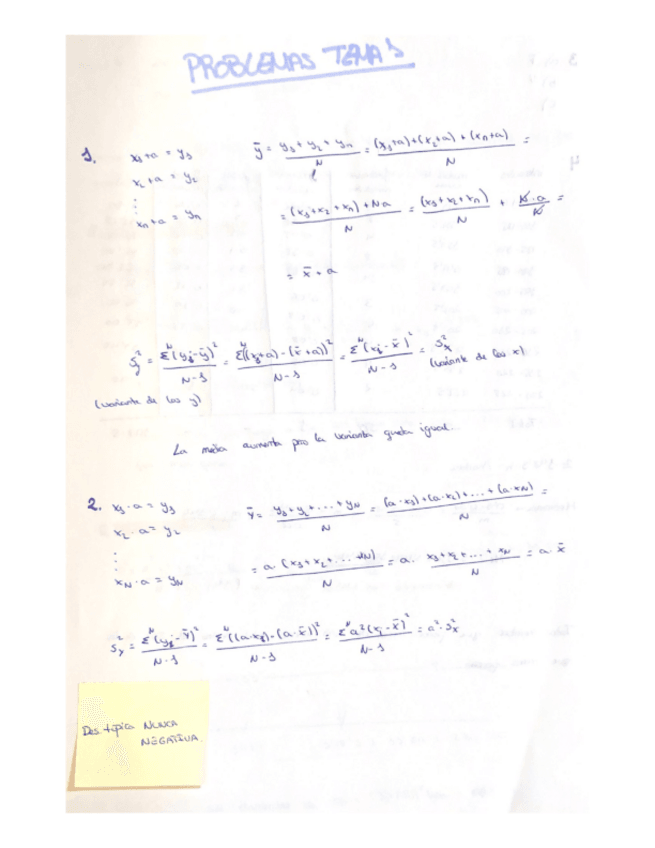 PROBLEMAS TEMA 1
1. x₁+a = y₁
x₂+a = y₂
⋮
xn+a = yn
ȳ = (y₁+y₂+yn)/N = ((x₁+a)+(x₂+a)+(xn+a))/N =
= ((x₁+x₂+xn)+Na)/N = (x₁+x₂+xn)/N + N·a/N =
= x̄+a
S²y = Σᴺ(yj-ȳ)²/(N-1) = Σᴺ((xj+a)-(x̄+a))²/(N-1) = Σᴺ(xj-x̄)²/(N-1) = S²x
(varianta de los y)
(varianta de los x)
La media aumenta pro la varianta queda igual.
2. x₁·a = y₁
x₂·a = y₂
⋮
xN·a = yN
Ȳ = (y₁+y₂+...+yN)/N = ((a·x₁)+(a·x₂)+...+(a·xN))/N =
= a·(x₁+x₂+...+xN)/N = a·(x₁+x₂+...+xN)/N = a·x̄
S²y = Σᴺ(yj-Ȳ)²/(N-1) = Σᴺ((a·xj)-(a·x̄))²/(N-1) = Σᴺa²(xj-x̄)²/(N-1) = a²·S²x
Des. típica NUNCA
NEGATIVA.